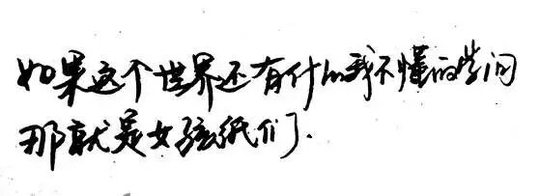 如果这个世界还有什么我不懂的学问
那就是女孩纸们.